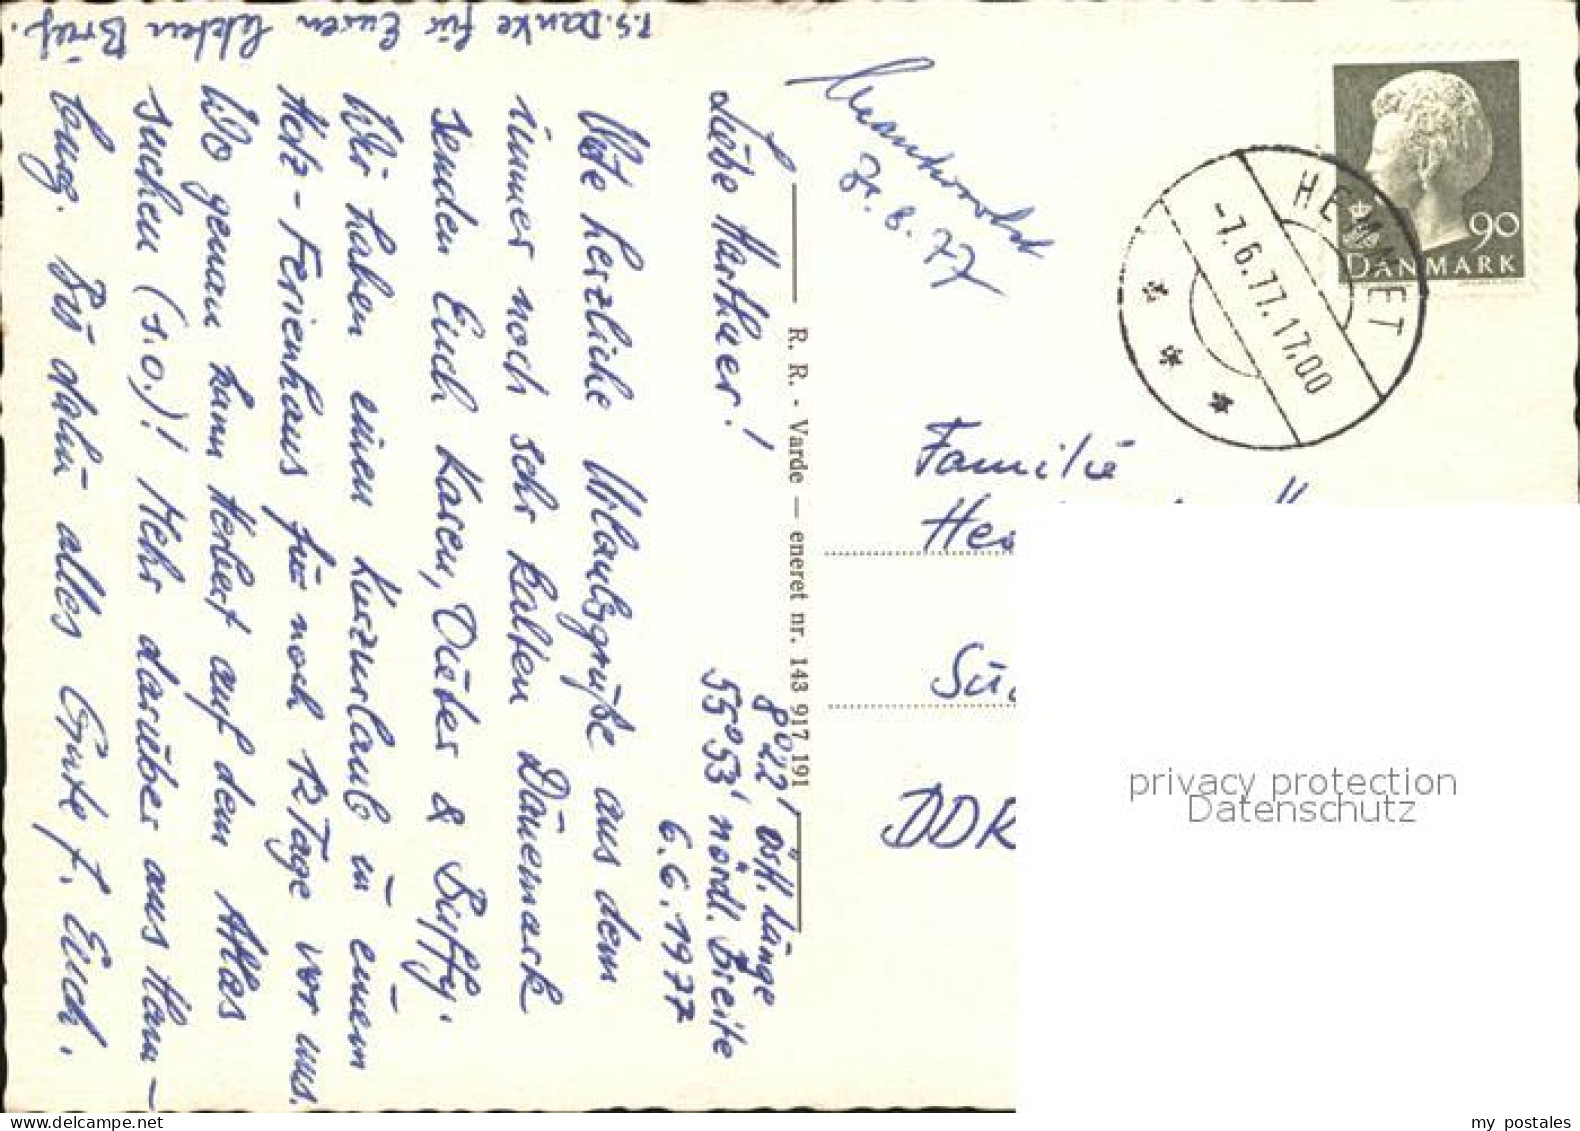 8°22' östl. Länge
55°53' nördl. Breite
6.6.1977
Liebe Harthuer!
Viele herzliche Urlaubsgrüße aus dem
immer noch sehr kalten Dänemark
senden Euch Karen, Dieter & Buffy.
Wir haben einen Kurzurlaub in einem
Holz-Ferienhaus für noch 12 Tage vor uns.
Wo genau kann Herbert auf dem Atlas
suchen (s.o.)! Mehr darüber aus Ham-
burg. Bis dahin alles Gute f. Euch.
P.S. Danke für Euren lieben Brief.
R. R. - Varde — eneret nr. 143 917 191
Beantwortet
8. 77
90
DANMARK
HEMMET
-7.6.77.17.00
Familie
DDR
privacy protection
Datenschutz
my postales